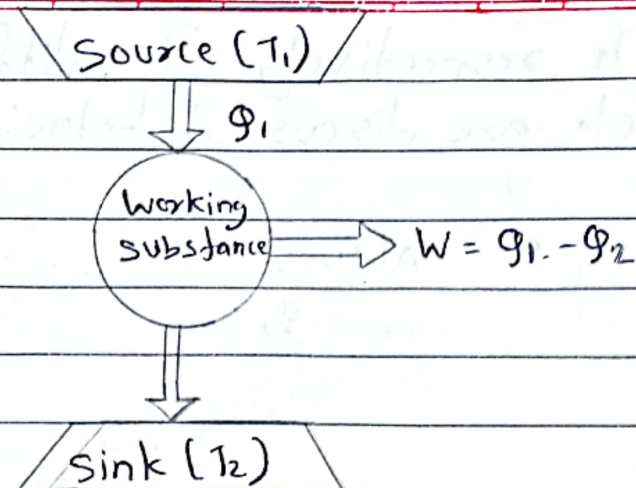 Source (T1)
Q1
Working
substance
W = Q1 - Q2
Sink (T2)